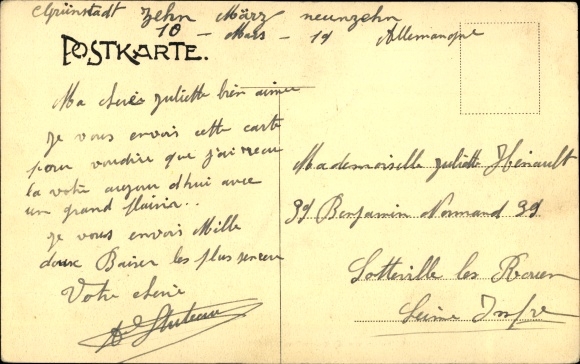 Grünstadt zehn März neunzehn
10 - Mars - 19 Allemangne
POSTKARTE.
Ma chérie Juliette bien aimée
Je vous envois cette carte
pour voudire que j'ai recu
la votre aujourd'hui avec
un grand plaisir..
Je vous envois Mille
doux Baiser les plus sincere
Votre cherie
Mademoiselle Juliette Hénault
39 Benjamin Normand 39
Sotteville les Rouen
Seine Infre